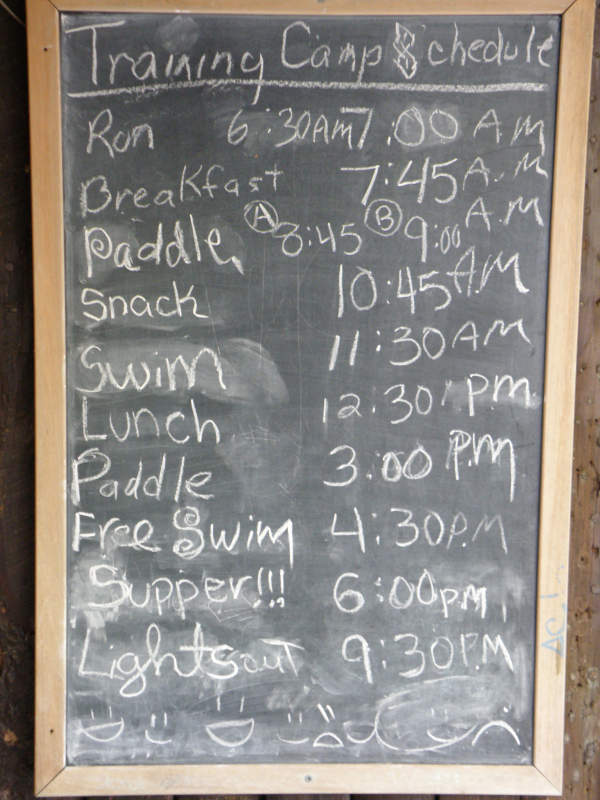 Training Camp Schedule
Run 6:30AM 7.00 A.M
Breakfast 7:45 A.M
Paddle Ⓐ 8:45 Ⓑ 9:00 A.M
Snack 10:45 AM
Swim 11:30 AM
Lunch 12:30 P.M.
Paddle 3:00 P.M
Free Swim 4:30P.M
Supper!!! 6:00p.m.
Lights out 9:30P.M